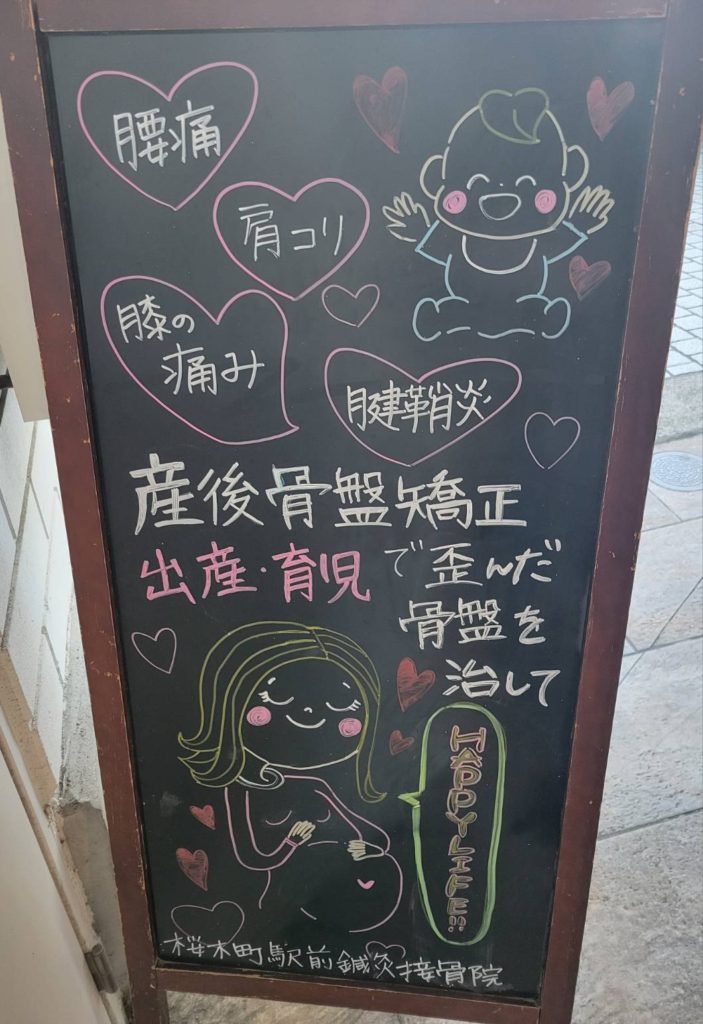 腰痛
肩コリ
膝の
痛み
腱鞘炎
産後骨盤矯正
出産・育児で歪んだ
骨盤を
治して
HAPPY LIFE!!
桜木町駅前鍼灸接骨院